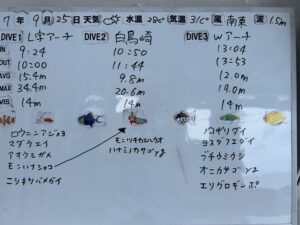 7年 9月25日 天気 水温 28℃ 気温 31℃ 風 南東 波 1.5m
DIVE1 L字アーチ DIVE2 白鳥崎 DIVE3 Wアーチ
IN 9:24 10:50 13:04
OUT 10:00 11:44 13:53
AVG 15.4m 9.8m 12.0m
MAX 34.4m 20.6m 14.0m
VIS 14m 14m 14m
ロウニンアジ×3
マダラエイ
アオウミガメ
モンハナシャコ
ニシキツバメガイ
モンツキカエルウオ
ハナミノカサゴyg
ノコギリダイ
ヨスジフエダイ
ブチウミウシ
オニカサゴyg
エリグロギンポ